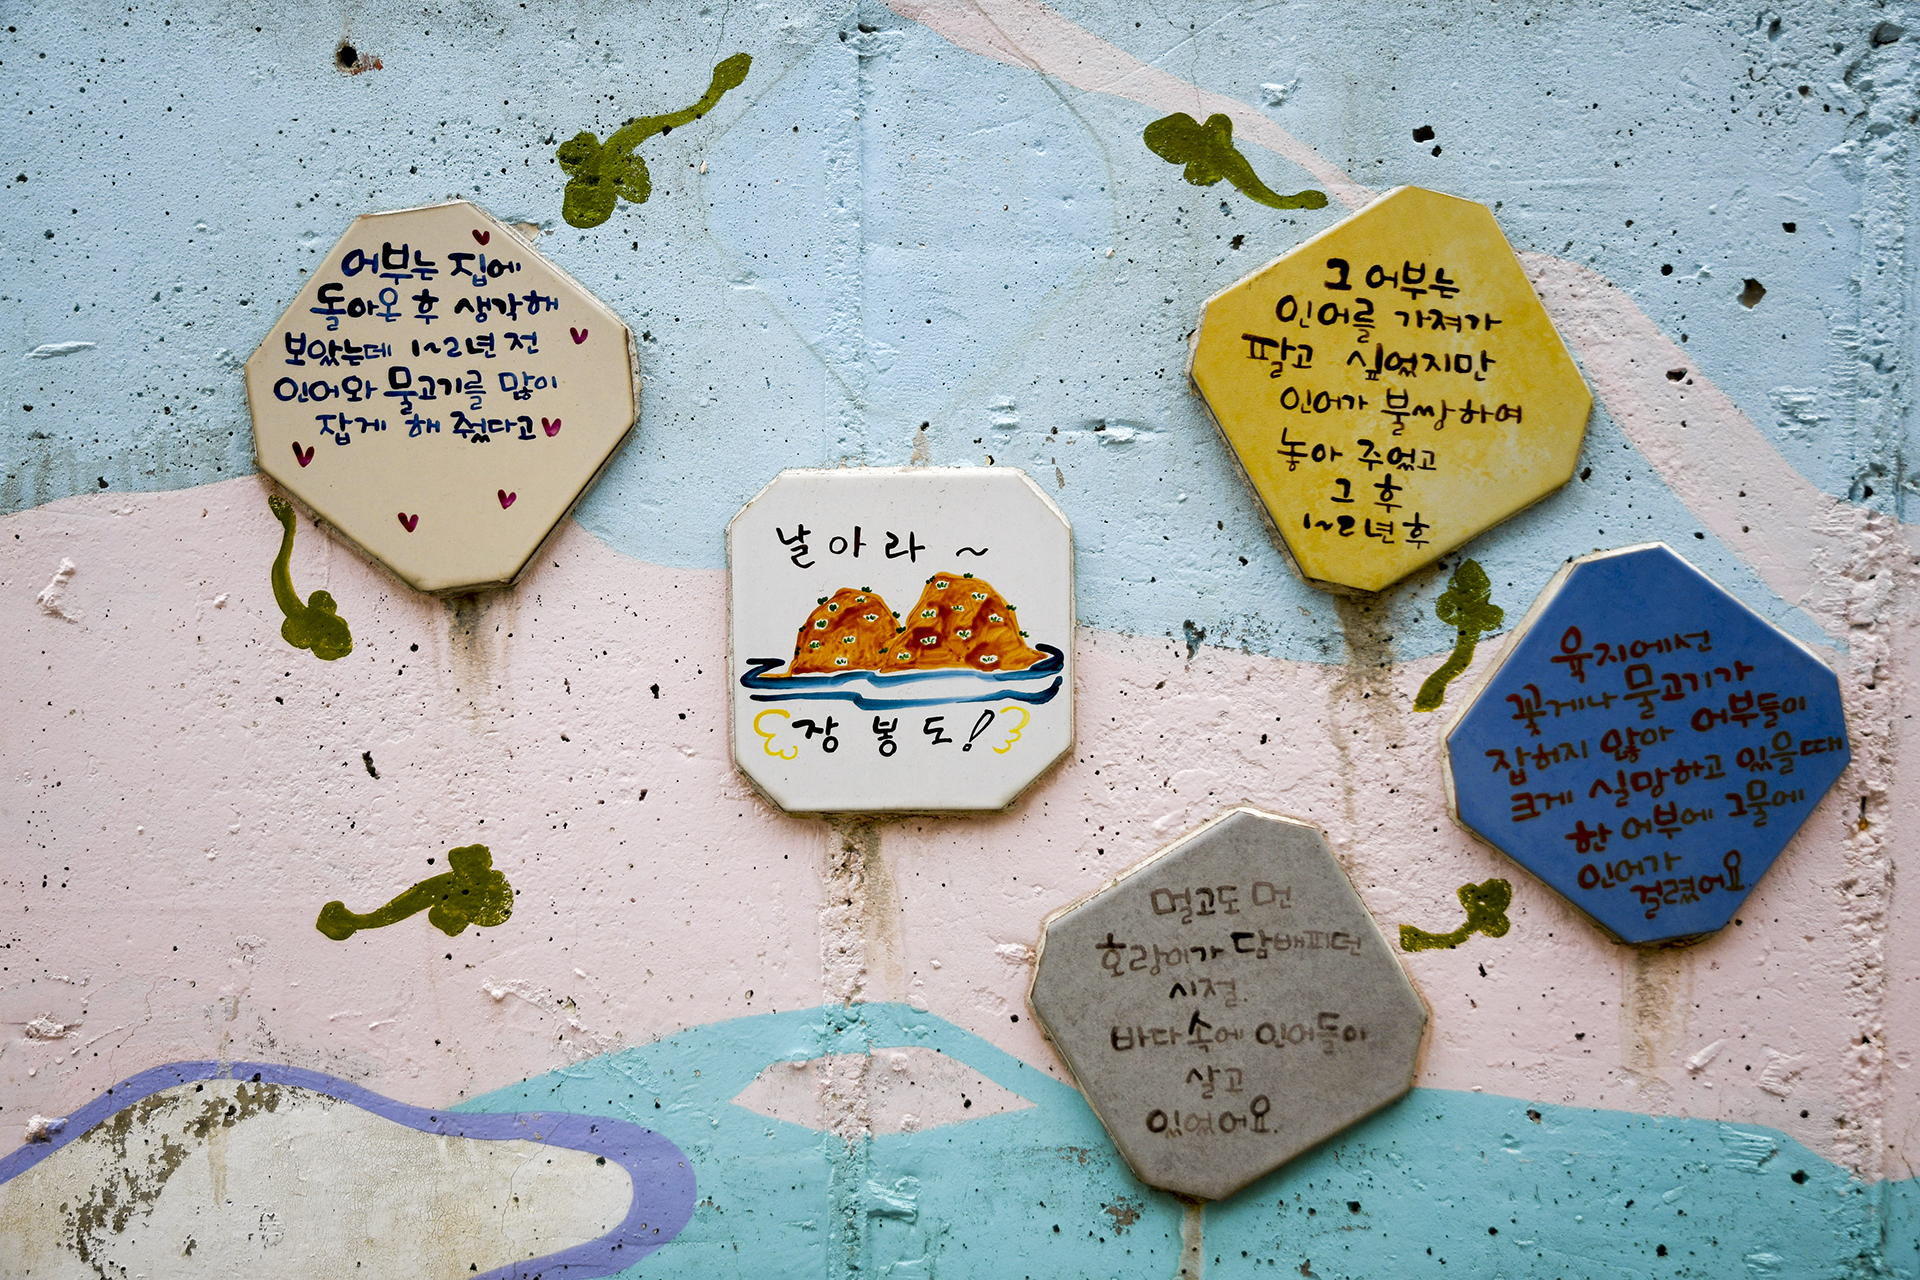 어부는 집에
돌아온 후 생각해
보았는데 1~2년 전
인어와 물고기를 많이
잡게 해 줬다고
날아라~
장봉도!
그 어부는
인어를 가져가
팔고 싶었지만
인어가 불쌍하여
놓아 주었고
그 후
1~2년 후
육지에선
꽃게나 물고기가
잡히지 않아 어부들이
크게 실망하고 있을때
한 어부에 그물에
인어가
걸렸어요.
멀고도 먼
호랑이가 담배피던
시절.
바다속에 인어들이
살고
있었어요.